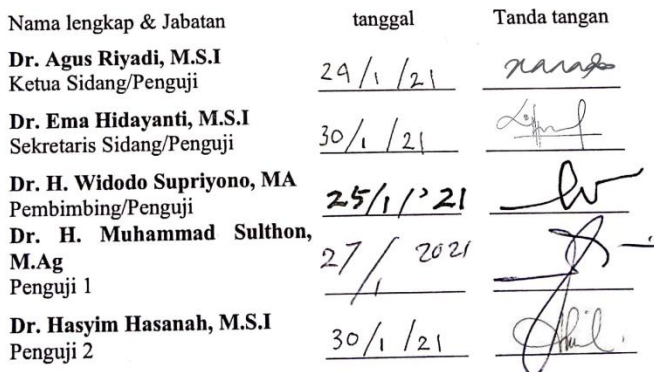 Nama lengkap & Jabatan tanggal Tanda tangan
Dr. Agus Riyadi, M.S.I
Ketua Sidang/Penguji 29/1/21
Dr. Ema Hidayanti, M.S.I
Sekretaris Sidang/Penguji 30/1/21
Dr. H. Widodo Supriyono, MA
Pembimbing/Penguji 25/1/'21
Dr. H. Muhammad Sulthon,
M.Ag 27/1 2021
Penguji 1
Dr. Hasyim Hasanah, M.S.I
Penguji 2 30/1/21